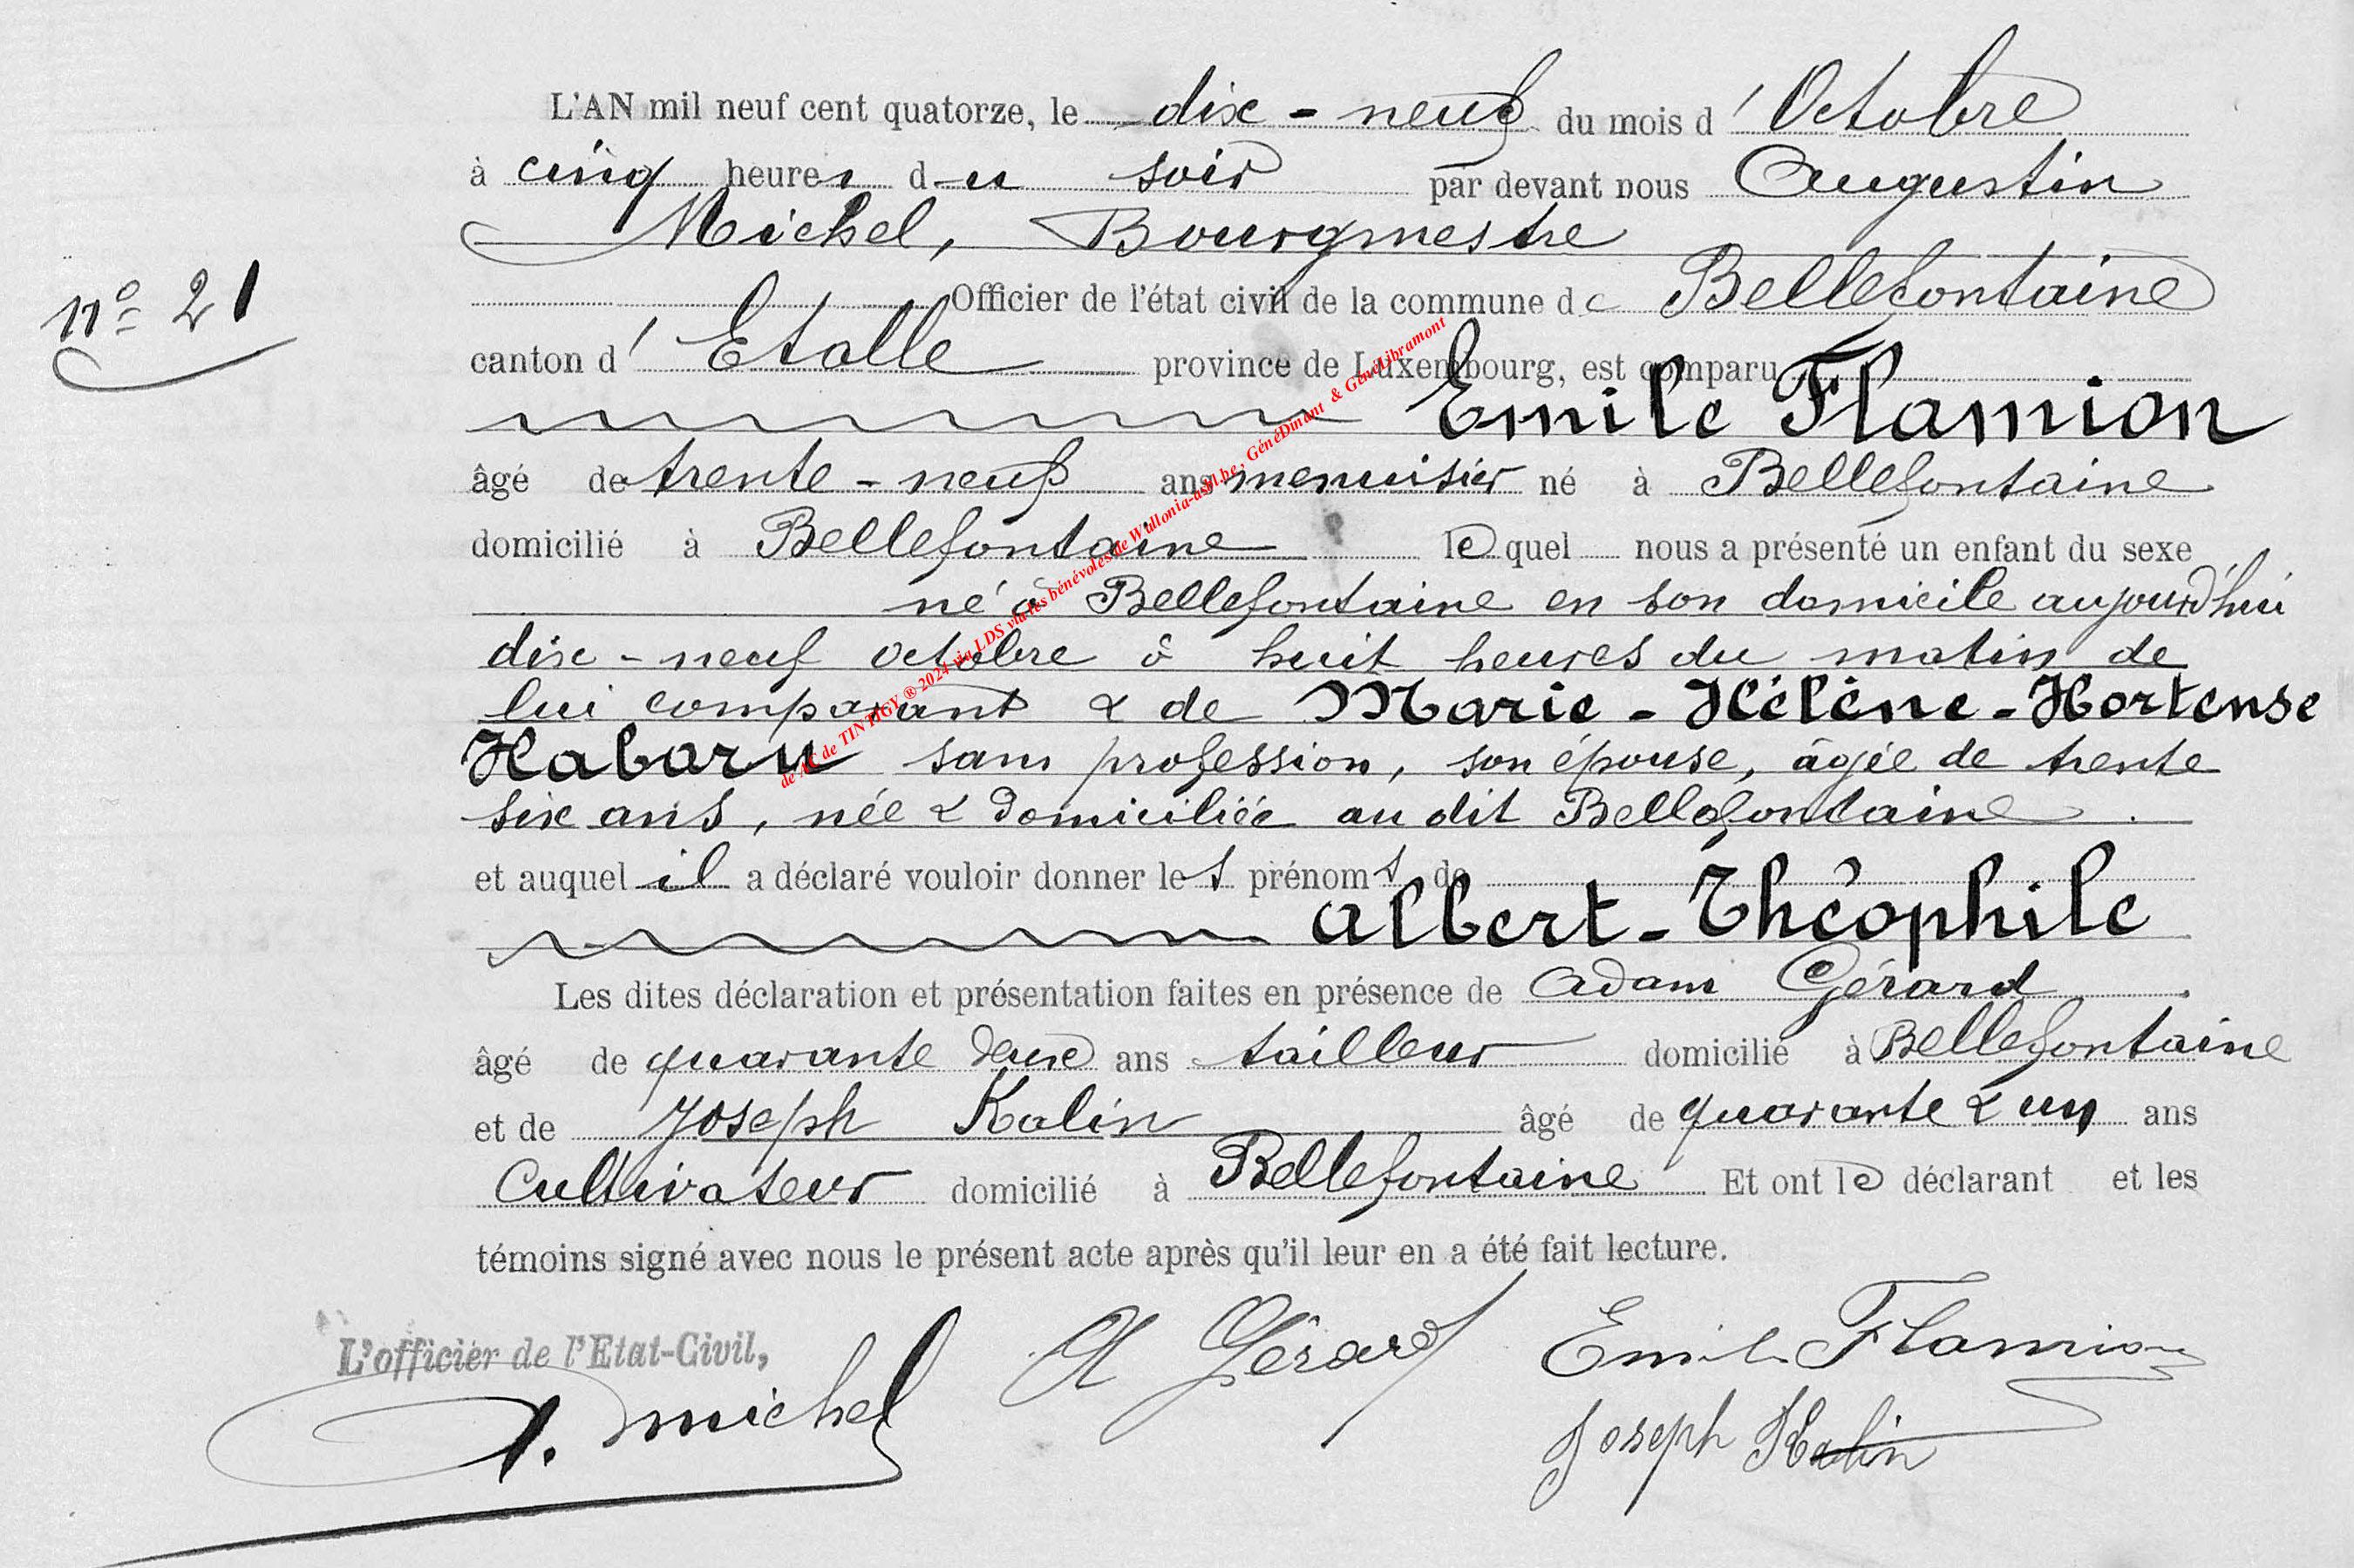 L'AN mil neuf cent quatorze, le dix-neuf du mois d'Octobre
à cinq heures du soir par devant nous Augustin
Michel, Bourgmestre
Officier de l'état civil de la commune de Bellefontaine
nº 21
canton d'Etalle province de Luxembourg, est comparu
Emile Flamion
âgé de trente-neuf ans menuisier né à Bellefontaine
domicilié à Bellefontaine lequel nous a présenté un enfant du sexe
né à Bellefontaine en son domicile aujourd'hui
dix-neuf octobre à huit heures du matin de
lui comparant & de Marie-Hélène-Hortense
Habaru sans profession, son épouse, âgée de trente
six ans, née & domiciliée au dit Bellefontaine.
et auquel il a déclaré vouloir donner les prénoms de
Albert-Théophile
Les dites déclaration et présentation faites en présence de Adam Gérard
âgé de quarante deux ans tailleur domicilié à Bellefontaine
et de Joseph Kalin âgé de quarante & un ans
Cultivateur domicilié à Bellefontaine Et ont le déclarant et les
témoins signé avec nous le présent acte après qu'il leur en a été fait lecture.
L'officier de l'Etat-Civil,
A. Michel
A Gérard
Emile Flamion
Joseph Kalin
de AC de TINTIGY ® 2024 via LDS via les bénévoles de Wallonia-asbl.be, GénéDinant & GénéLibramont